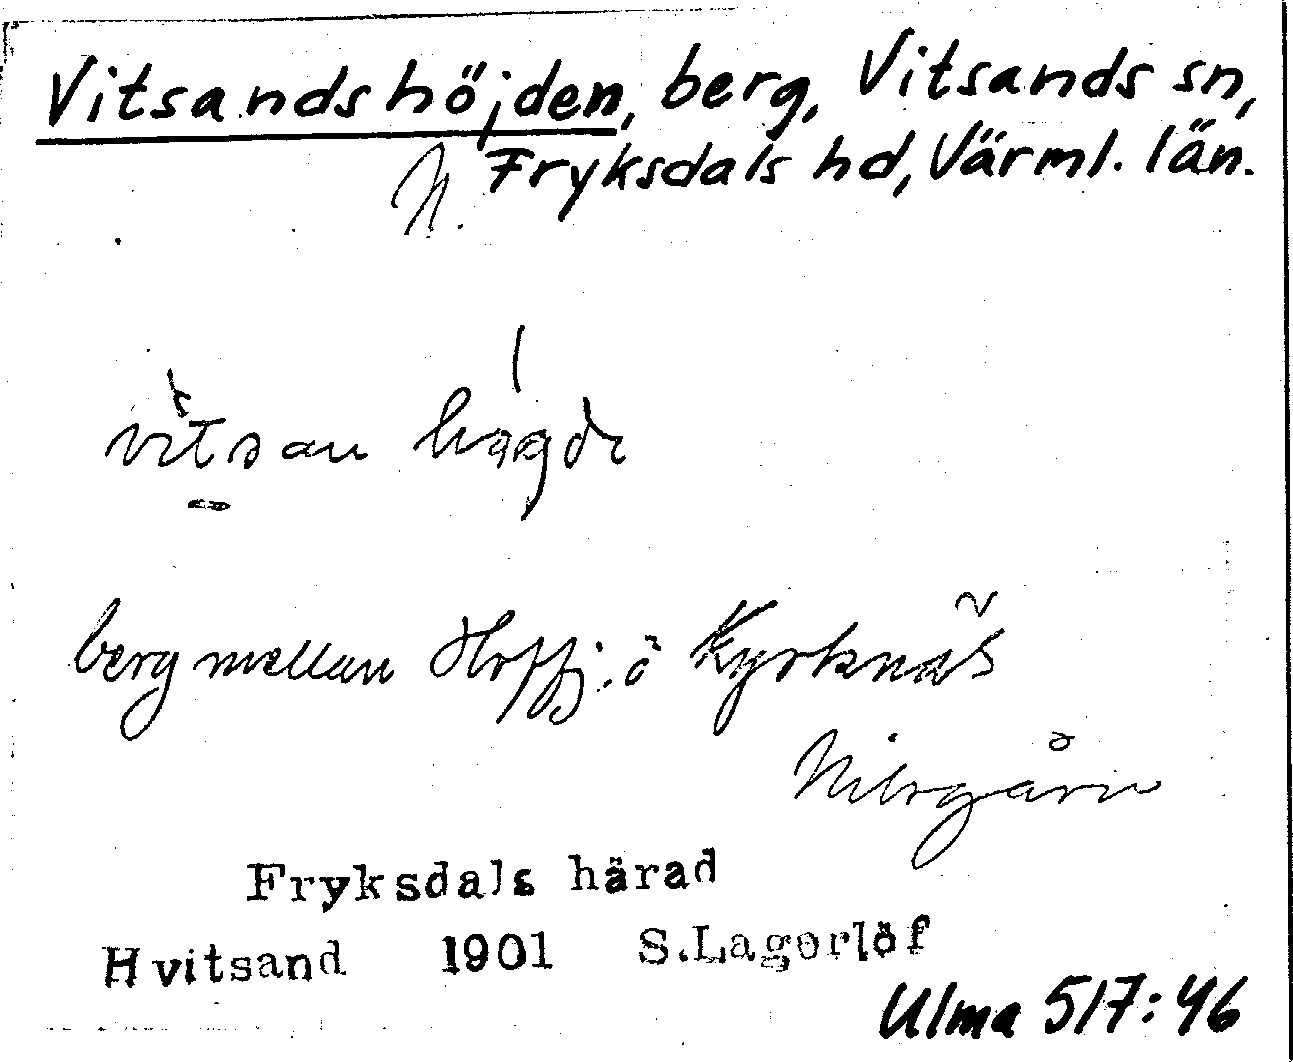 Vitsandshöjden, berg, Vitsands sn,
N. Fryksdals hd, Värml. län.
vitsan
berg mellan
Fryksdals härad
Hvitsand 1901 S.Lagerlöf
Ulma 517:46